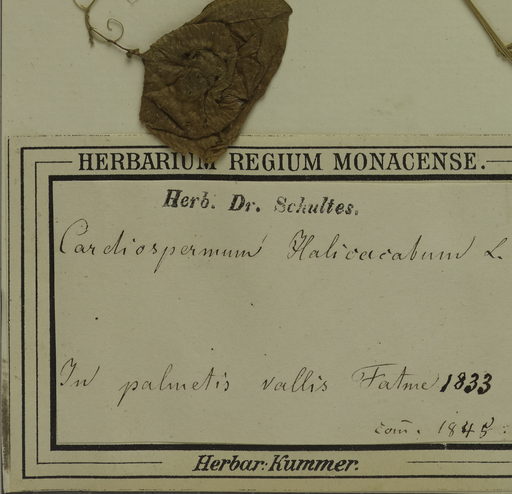 HERBARIUM REGIUM MONACENSE.
Herb. Dr. Schultes.
Cardiospermum Halicacabum L.
In palmetis vallis Fatme 1833
com. 1845.
Herbar: Kummer.